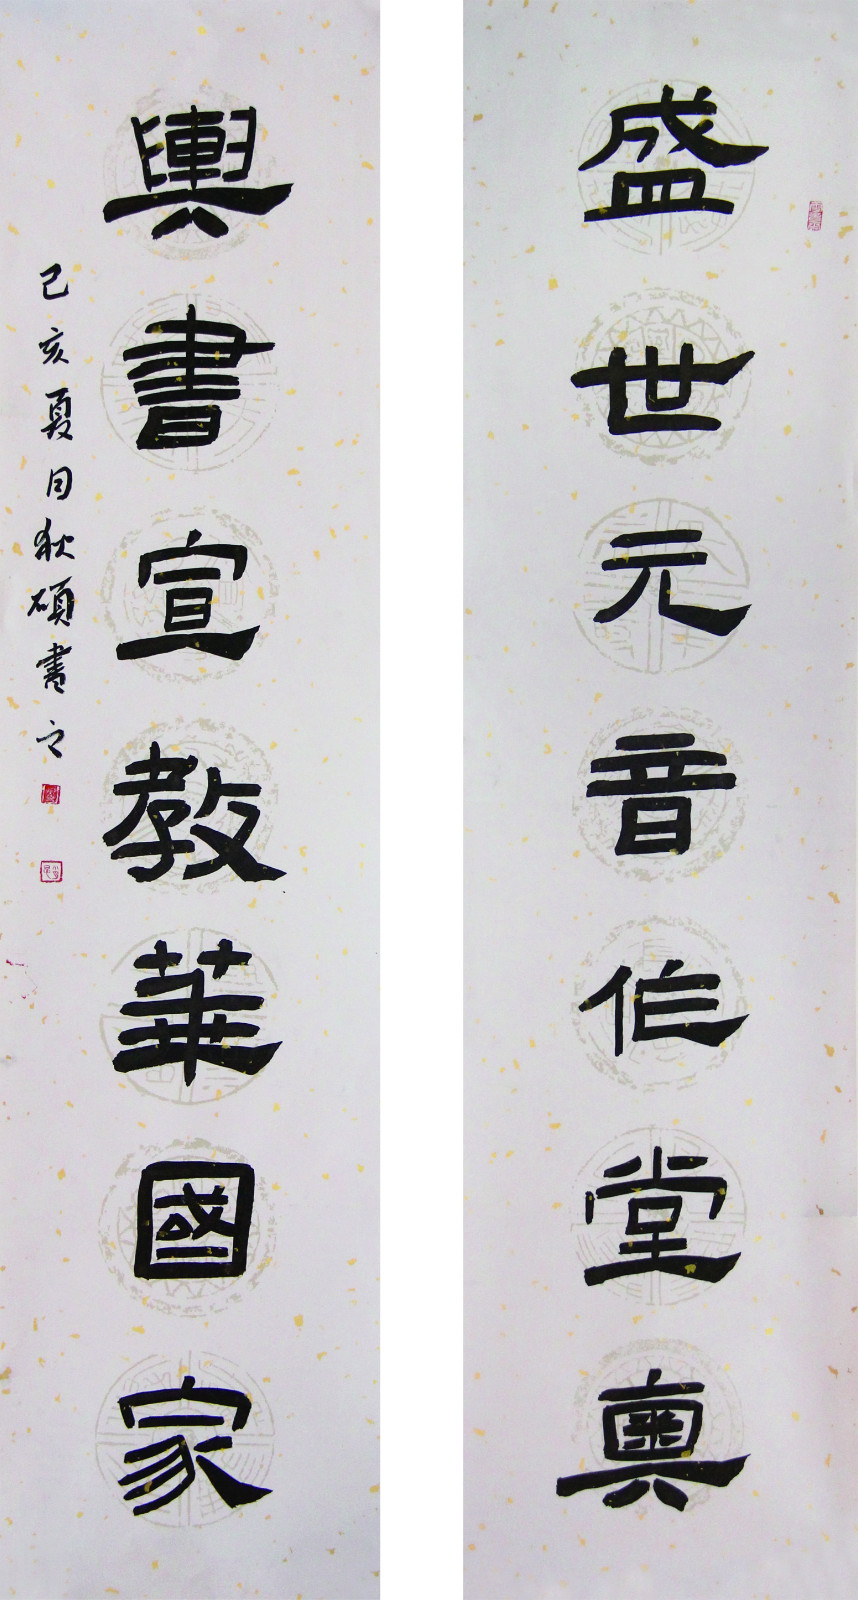 盛世元音作堂奥
輿書宣教華國家
己亥夏月狄碩書之